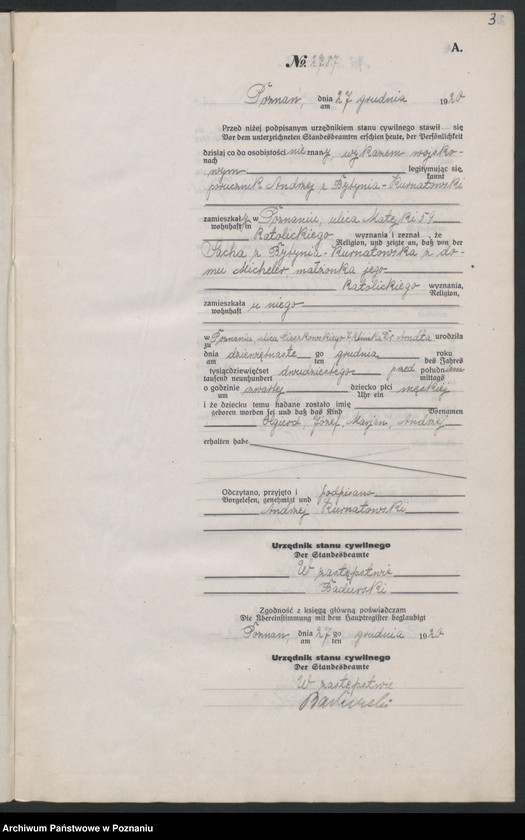 3
A.
№ 2257
Poznań, dnia 27 grudnia 1920
am
Przed niżej podpisanym urzędnikiem stanu cywilnego stawił się
Vor dem unterzeichneten Standesbeamten erschien heute, der Persönlichkeit
dzisiaj co do osobistości nie znany, wykazem wojsko-
nach
wym legitymując się,
kannt
porucznik Andrzej z Bytynia-Kurnatowski
zamieszkały w Poznaniu, ulica Matejki 54
wohnhaft in
katolickiego wyznania i zeznał, że
Religion, und zeigte an, daß von der
z Bytynia-Kurnatowska z do-
mu Micheler małżonka jego
katolickiego wyznania,
Religion,
zamieszkała u niego
wohnhaft
w Poznaniu, ulica klinika Dr. urodziła
zu
dnia dziewiętnaste go grudnia roku
am ten des Jahres
tysiącdziewięćset dwudziestego przed południem
tausend neunhundert mittags
o godzinie czwartej dziecko płci męskiej
um Uhr ein
i że dziecku temu nadane zostało imię
geboren worden sei und daß das Kind Vornamen
Olgierd, Józef, Marjan, Andrzej
erhalten habe.
Odczytano, przyjęto i podpisano
Vorgelesen, genehmigt und
Andrzej Kurnatowski
Urzędnik stanu cywilnego
Der Standesbeamte
W zastępstwie
Urzędnik
Zgodność z księgą główną poświadczam
Die Übereinstimmung mit dem Hauptregister beglaubigt
Poznań, dnia 27 go grudnia 1920
am ten
Urzędnik stanu cywilnego
Der Standesbeamte
W zastępstwie
Archiwum Państwowe w Poznaniu